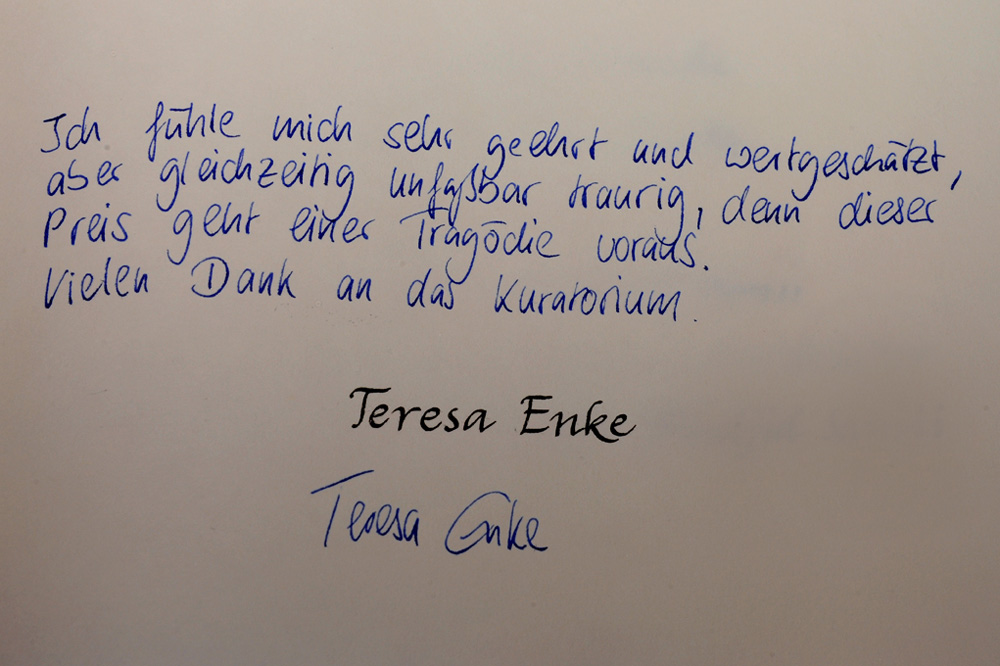 Ich fühle mich sehr geehrt und wertgeschätzt,
aber gleichzeitig unfaßbar traurig, denn dieser
Preis geht einer Tragödie voraus.
Vielen Dank an das Kuratorium.
Teresa Enke
Teresa Enke